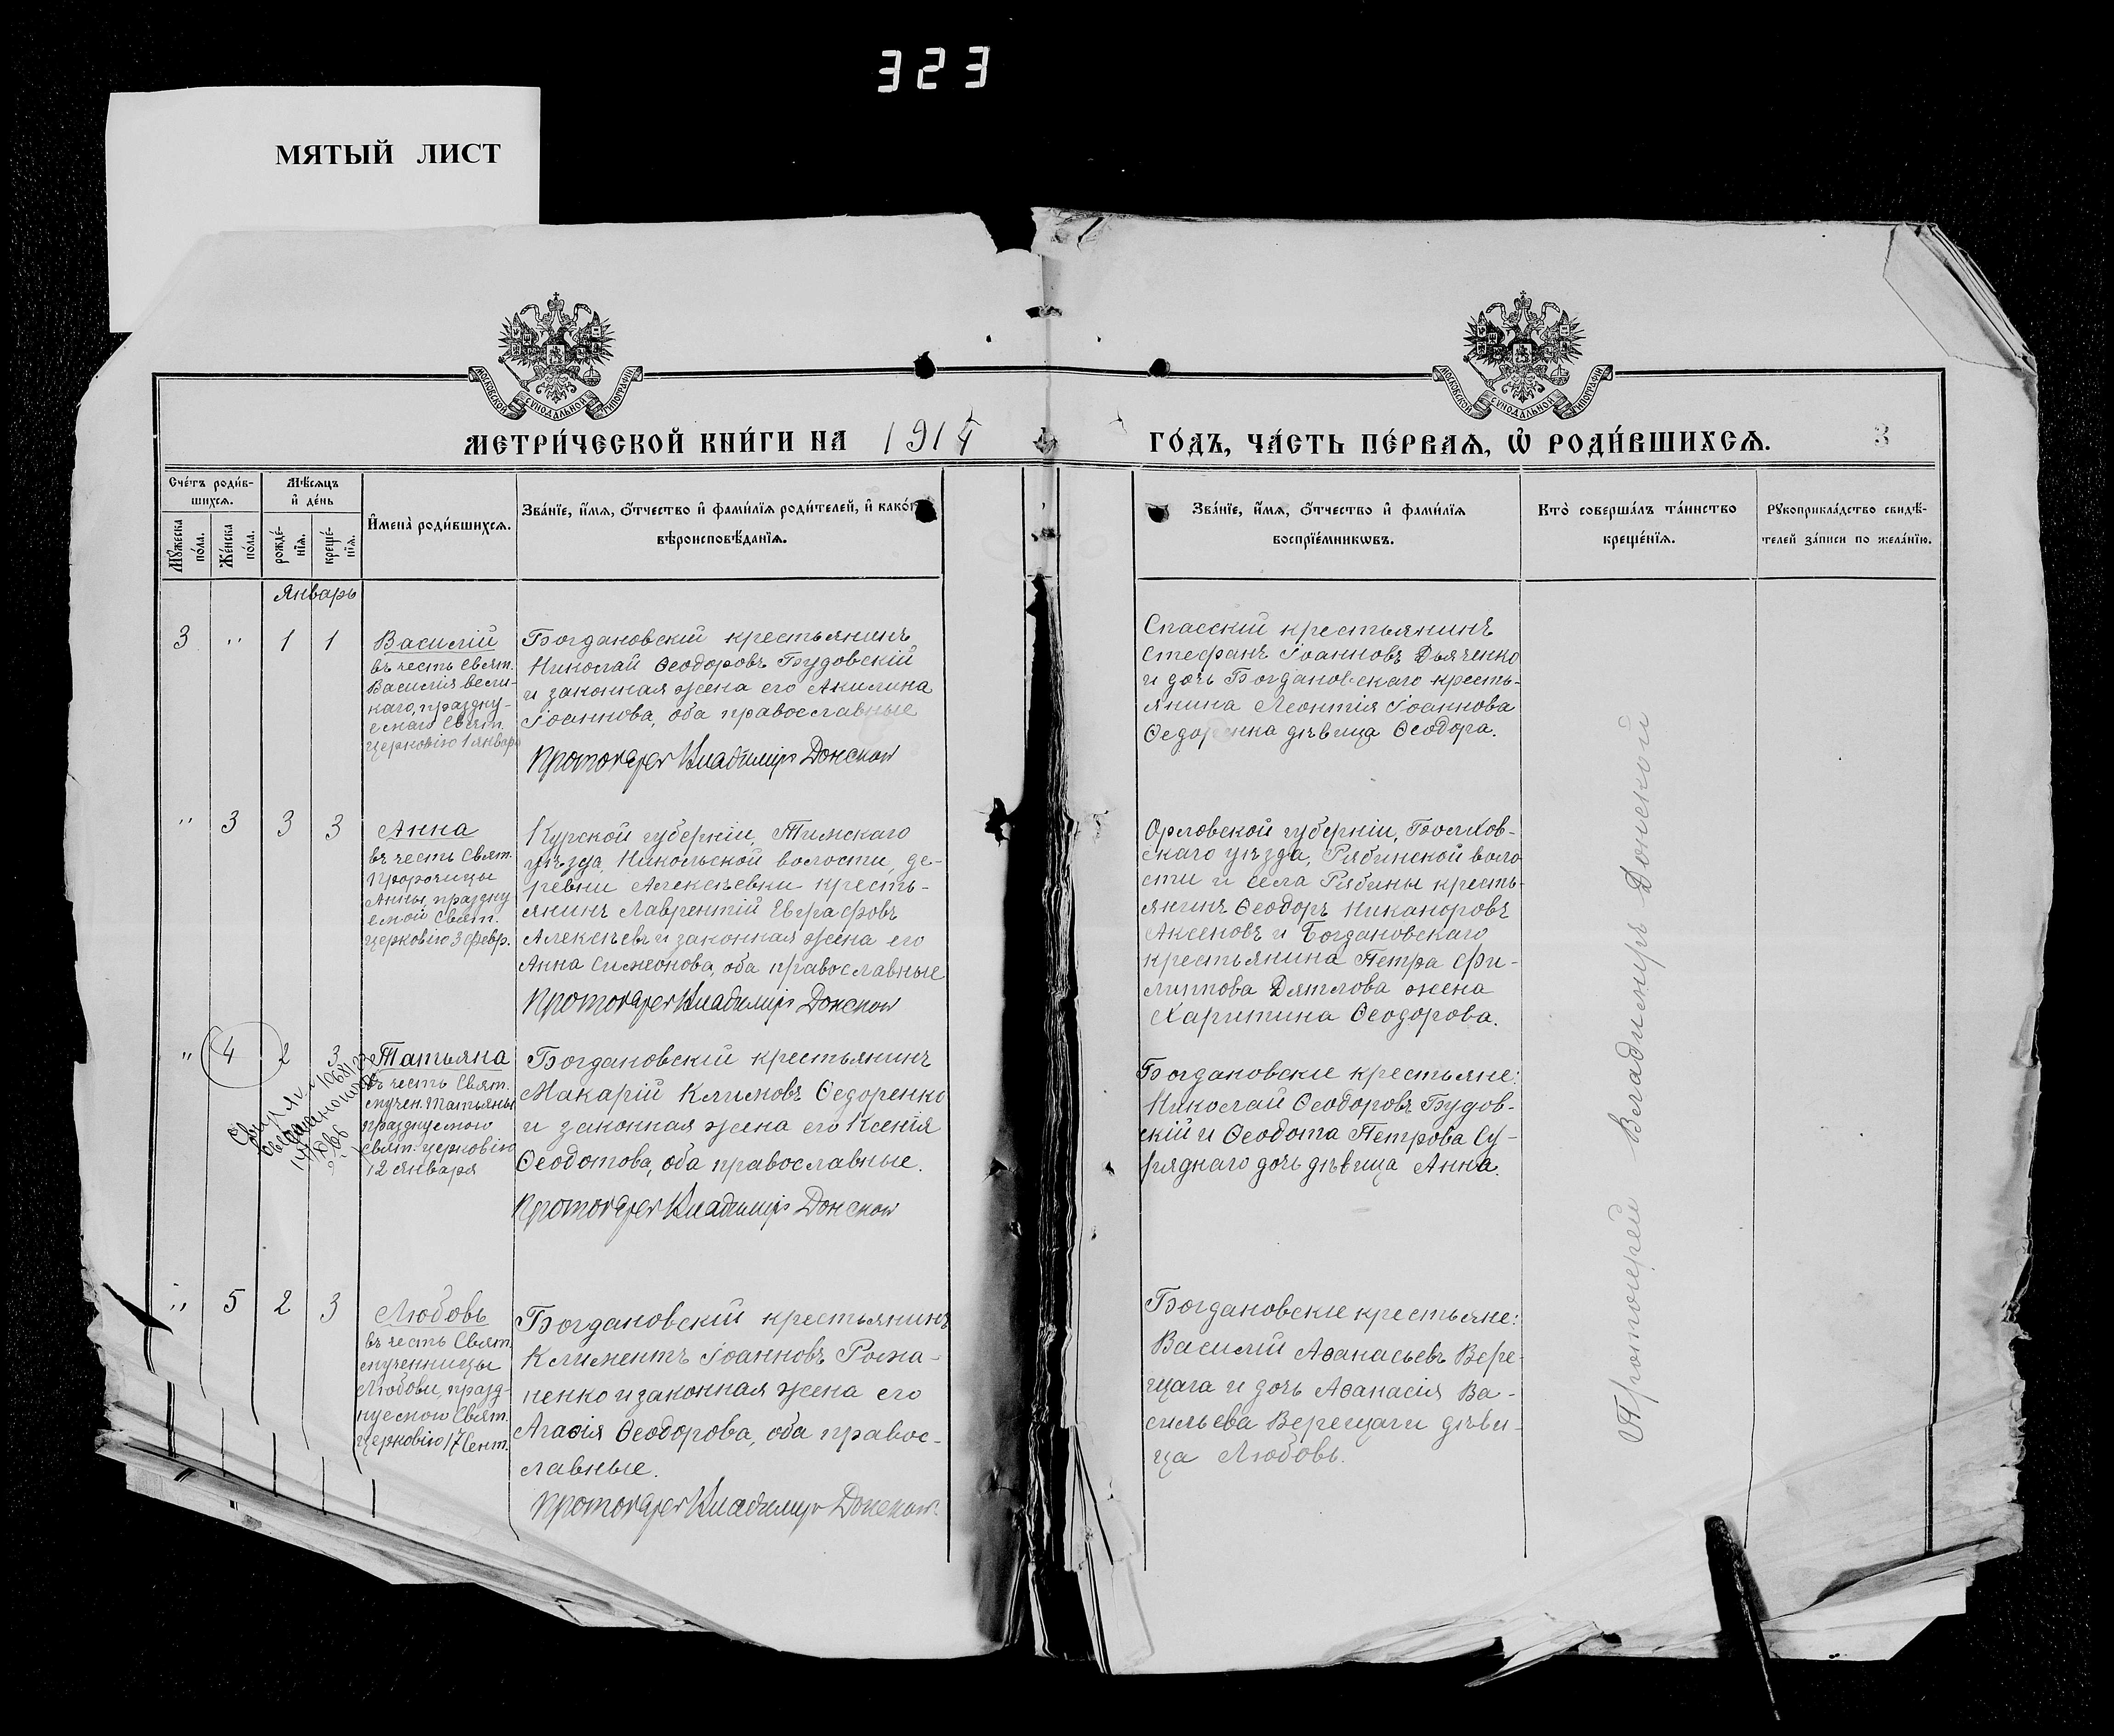 323
МЯТЫЙ ЛИСТ
МОСКОВСКОЙ СѴНОДАЛЬНОЙ ТИПОГРАФІИ
МОСКОВСКОЙ СѴНОДАЛЬНОЙ ТИПОГРАФІИ
МЕТРИ́ЧЕСКОЙ КНИ́ГИ НА 1914
ГО́ДЪ, ЧА́СТЬ ПЕ́РВАѦ, Ѽ РОДИ́ВШИХСѦ.
3
Сче́тъ роди́в-
шихсѧ.
Мѣ́сѧцъ
и҆ де́нь
Мꙋ́жеска
по́ла.
Же́нска
по́ла.
рожде́-
нїѧ.
креще́-
нїѧ.
И҆мена̀ роди́вшихсѧ.
Зва́нїе, и҆́мѧ, ѻ҆́тчество и҆ фами́лїѧ роди́телей, и҆ како́гѡ
вѣроисповѣ́данїѧ.
Зва́нїе, и҆́мѧ, ѻ҆́тчество и҆ фами́лїѧ
воспрїе́мникѡвъ.
Кто̀ соверша́лъ та́инство
креще́нїѧ.
Рꙋкоприкла́дство свидѣ́-
телей за́писи по жела́нїю.
Январь
3 " 1 1
Василій
въ честь Свят.
Василія вели-
каго, праздну-
емаго Свят.
церковію 1 января
Богдановскій крестьянинъ
Николай Ѳеодоровъ Будовскій
и законная жена его Акилина
Іоаннова, оба православные
Протоіерей Владиміръ Донской
Спасскій крестьянинъ
Стефанъ Іоанновъ Дьяченко
и дочь Богдановскаго кресть-
янина Леонтія Іоаннова
Ѳедоренка дѣвица Ѳеодора.
" 3 3 3
Анна
въ честь Свят.
Пророчицы
Анны, праздну
емой Свят.
церковію 3 февр.
Курской губерніи, Тимскаго
уѣзда, Никольской волости, де-
ревни Алексѣевки кресть-
янинъ Лаврентій Евграфовъ
Алексѣевъ и законная жена его
Анна Симеонова, оба православные
Протоіерей Владиміръ Донской
Орловской губерніи, Болхов-
скаго уѣзда, Рябинской воло
сти и села Рябины кресть-
янинъ Ѳеодоръ Никаноровъ
Аксеновъ и Богдановскаго
крестьянина Петра Фи-
липпова Дятлова жена
Харитина Ѳеодорова.
" 4 2 3
Татьяна
въ честь Свят.
мучен. Татьяны
празднуемой
свят. церковію
12 января
Богдановскій крестьянинъ
Макарій Климовъ Ѳедоренко
и законная жена его Ксенія
Ѳеодотова, оба православные.
Протоіерей Владиміръ Донской
Богдановскіе крестьяне:
Николай Ѳеодоровъ Будов-
скій и Ѳеодота Петрова Су-
пряднаго дочь дѣвица Анна.
" 5 2 3
Любовь
въ честь Свят.
мученницы
Любови, празд-
нуемой Свят.
церковію 17 Сент.
Богдановскій крестьянинъ
Климентъ Іоанновъ Рома-
ненко и законная жена его
Агаѳія Ѳеодорова, оба правос-
лавные.
Протоіерей Владиміръ Донской
Богдановскіе крестьяне:
Василій Аѳанасьевъ Вере-
щага и дочь Аѳанасія Ва-
сильева Верещаги дѣви-
ца Любовь.
Протоіерей Владиміръ Донской